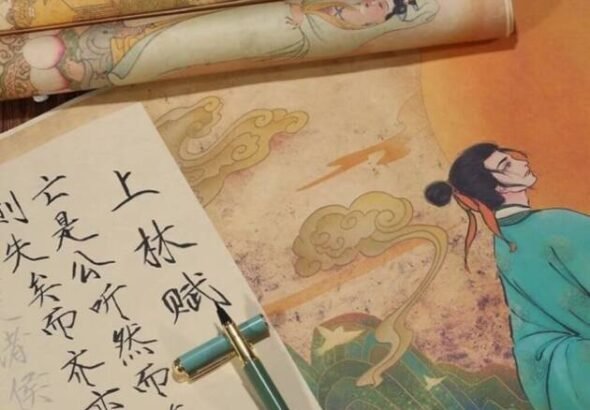 上林赋
亡是公听然而
则失矣而齐亦
诸侯